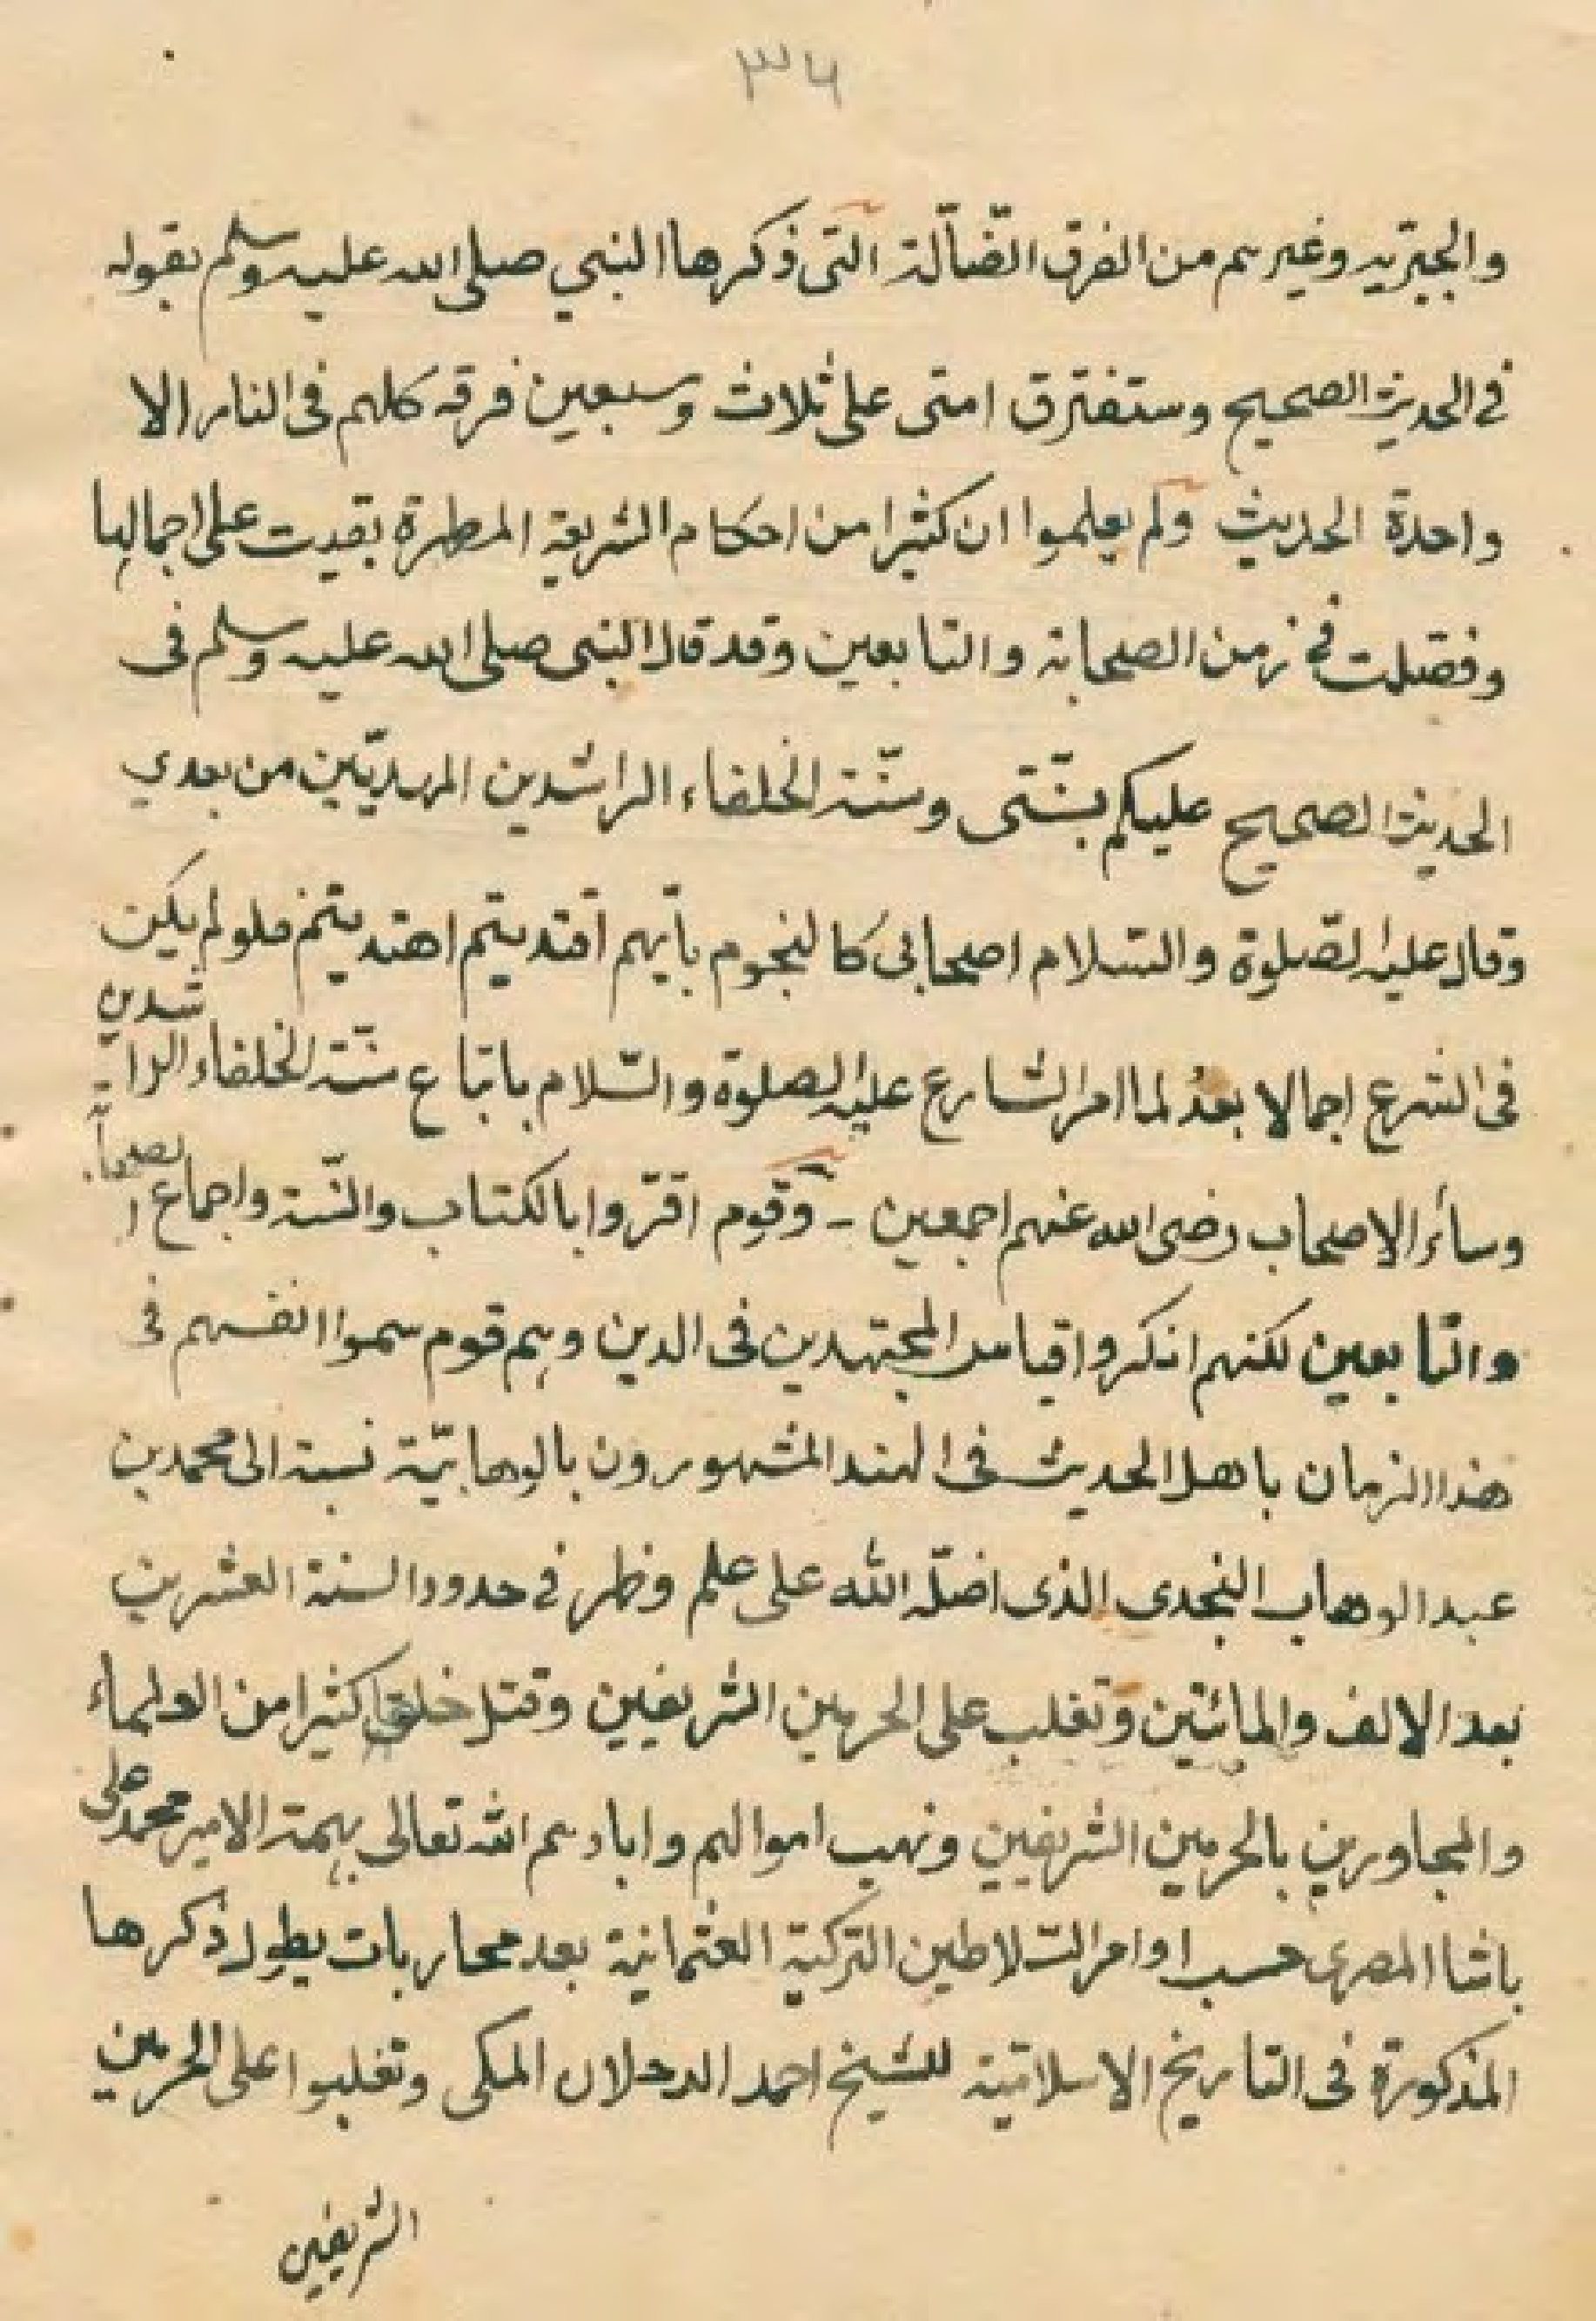 ٣٦
والجبريه وغيرهم من الفرق الضّآلة التى ذكرها النبي صلى الله عليه وسلم بقوله
فى الحديث الصحيح وستفترق امتى على ثلاث وسبعين فرقه كلهم فى النار الا
واحدة الحديث ولم يعلموا ان كثيرا من احكام الشريعة المطهرة بقيت على اجمالها
وفصّلت فى زمن الصحابة والتابعين وقد قال النبى صلى الله عليه وسلم فى
الحديث الصحيح عليكم بسنّتى وسنّة الخلفاء الراشدين المهديّين من بعدي
وقال عليه الصّلوة والسّلام اصحابى كالنجوم بأيّهم اقتديتم اهتديتم فلو لم يكن
فى الشرع اجمالا بعدُ لما امر الشارع عليه الصلوة والسّلام باتباع سنّة الخلفاء الراشدين
وسائر الاصحاب رضى الله عنهم اجمعين - وقوم اقرّوا بالكتاب والسّنة واجماع الصحابة
والتّابعين لكنهم انكروا قياس المجتهدين فى الدين وهم قوم سموا انفسهم فى
هذا الزمان باهل الحديث فى الهند المشهورون بالوهابيّة نسبة الى محمد بن
عبد الوهاب النجدى الذى اضلّه الله على علم وظهر فى حدود السنة العشرين
بعد الالف والمائتين وتغلب على الحرمين الشريفين وقتل خلقا كثيرا من العلماء
والمجاورين بالحرمين الشريفين ونهب اموالهم وابادهم الله تعالى بهمة الامير محمد على
باشا المصرى حسب اوامر السلاطين التركية العثمانية بعد محاربات يطول ذكرها
المذكورة فى التاريخ الاسلاميّة للشيخ احمد الدحلان المكى وتغلبوا على الحرمين
الشريفين